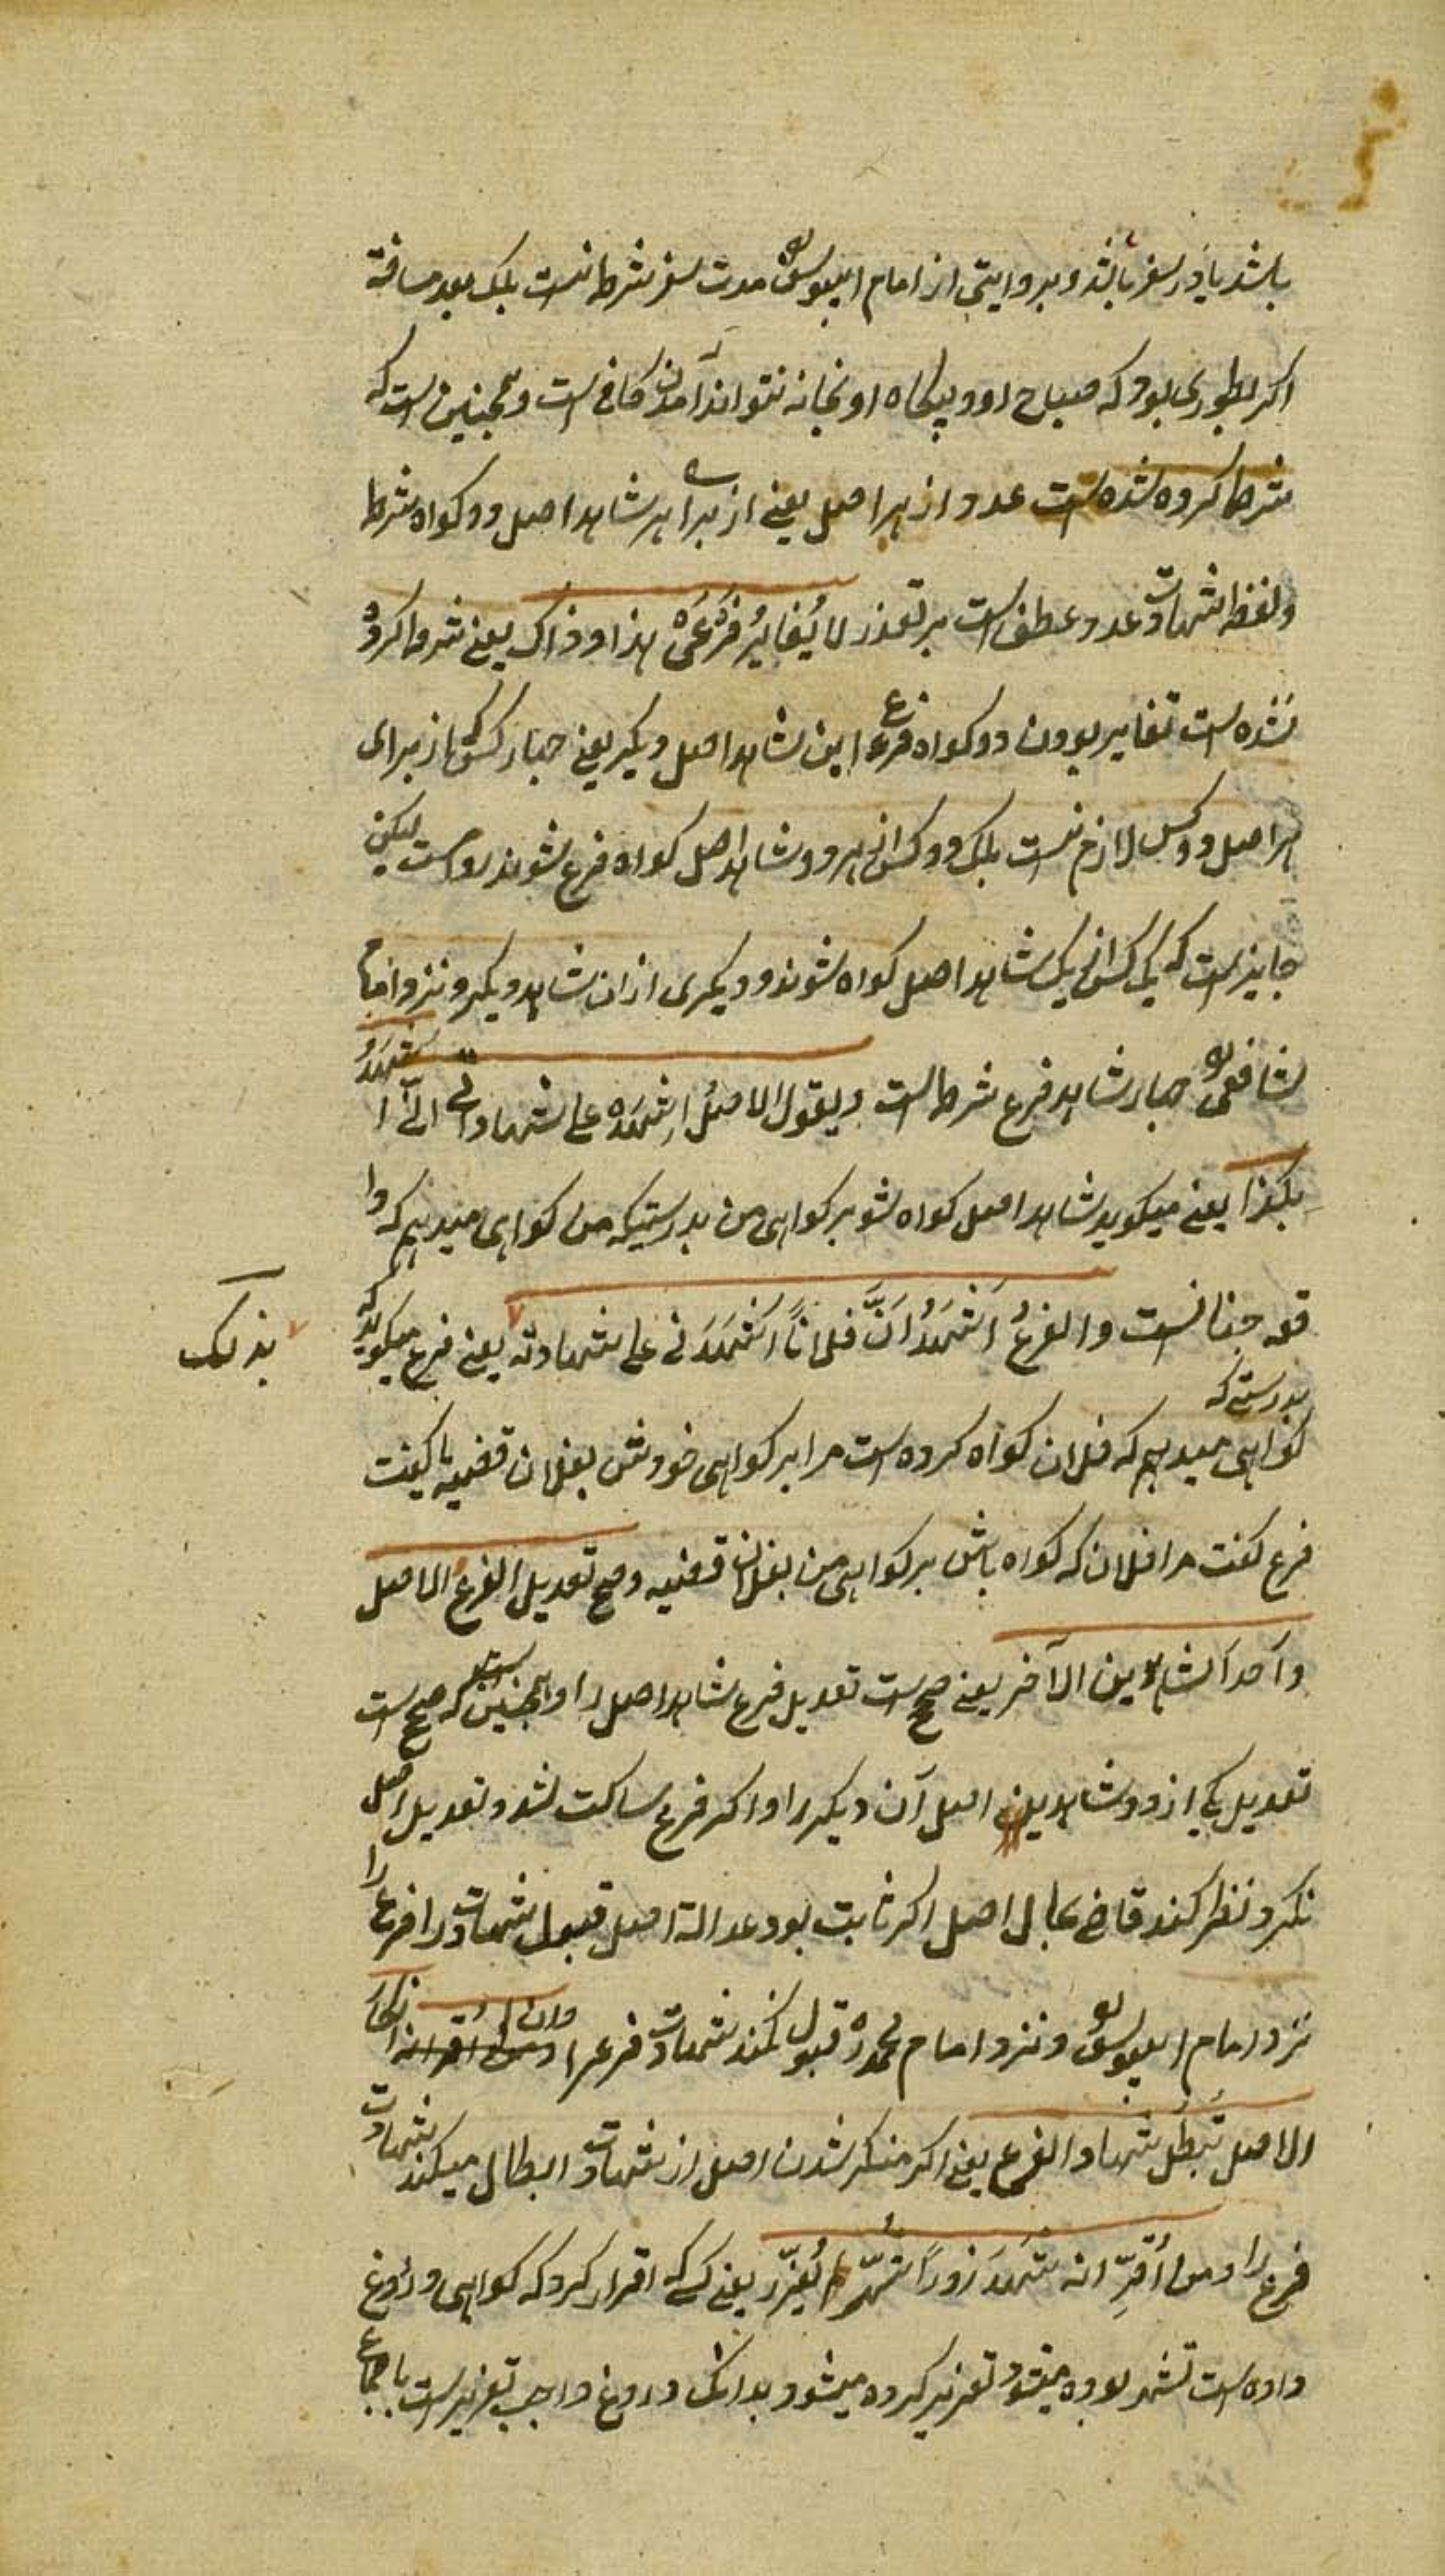 باشد یا در سفر باشد و بروایتی از امام ابییوسف مدت سفر شرط نیست بلک بعد مسافة
اکر بطوری بود که صباح او و بیکاه او بخانه نتواند آمدن کافی است و همچنین است که
شرط کرده شده است عدد از هر اصل یعنی از برای هر شاهد اصل دو کواه شرط
و لفظ شهادت عدد عطف است بر تعذر لا یُغایرُ فَرْعَیْ هذا و ذاک یعنی شرط کرده
نشده است تغایر بودن دو کواه فرع این شاهد اصل دیکر یعنی چهار کس که از برای
هر اصل دو کس لازم نیست بلک دو کس از هر دو شاهد اصل کواه فرع شوند رواست لیکن
جایز است که یک کس از یک شاهد اصل کواه شوند و دیکری از ان شاهد دیکر و نزد امام
شافعی چهار شاهد فرع شرط است و یقول الاصلُ اِشْهَدْ علی شهادتی انّی اشهدُ
بکذا یعنی میکوید شاهد اصل کواه شو بر کواهی من بدرستیکه من کواهی میدهم که وا
قعه چنانست و الفرعُ اَشْهَدُ اَنَّ فلاناً اَشْهَدَنی علی شهادته یعنی فرع میکوید که
بذلک
بدرستی که
کواهی میدهم که فلان کواه کرده است مرا بر کواهی خودش بفلان قضیه یا کفت
فرع کفت مرا فلان که کواه باش بر کواهی من بفلان قضیه و صح تعدیل الفرع الاصل
و احد الشاهدین الآخر یعنی صحیح است تعدیل فرع شاهد اصل را و همچنین است که صحیح است
تعدیل یکی از دو شاهدین اصل آن دیکر را و اکر فرع ساکت شد و تعدیل اصل
نکرد نظر کند قاضی بحال اصل اکر ثابت بود عدالة اصل قبول شهادت فرع را
نزد امام ابییوسف و نزد امام محمد قبول نکند شهادت فرع را و انکار
الاصل تبطل شهادة الفرع یعنی اکر منکر شدن اصل از شهادت ابطال میکند شهادت
فرع را و من اَقَرّ انه شَهَدَ زوراً شُهّر و لم یُعَزّر یعنی کسی که اقرار کرد که کواهی دروغ
داده است تشهیر بوده میشود تعزیر کرده میشود بدانک دروغ واجب تعزیر است باجماع